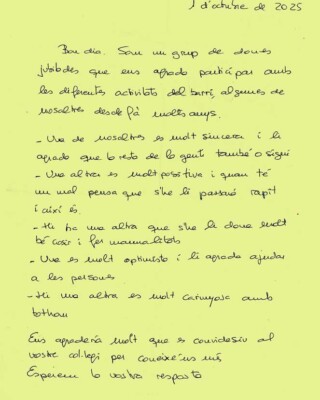 1 d'octubre de 2025
Bon dia. Som un grup de dones
jubilades que ens agrada participar amb
les diferentes activitats del barri, algunes de
nosaltres desde fà molts anys.
- Una de nosaltres es molt sincera i li
agrada que la resta de la gent també o sigui
- Una altra es molt positiva i quan té
un mal pensa que s'he li passarà ràpit
i així és.
- Hi ha una altra que s'he li dona molt
bé cosir i fer manualitats
- Una es molt optimista i li agrada ajudar
a les persones
- Hi ha altra es molt carinyosa amb
tothom
Ens agradaria molt que s convidesiu al
vostre col·legi per coneixe'ns més
Esperem la vostra resposta